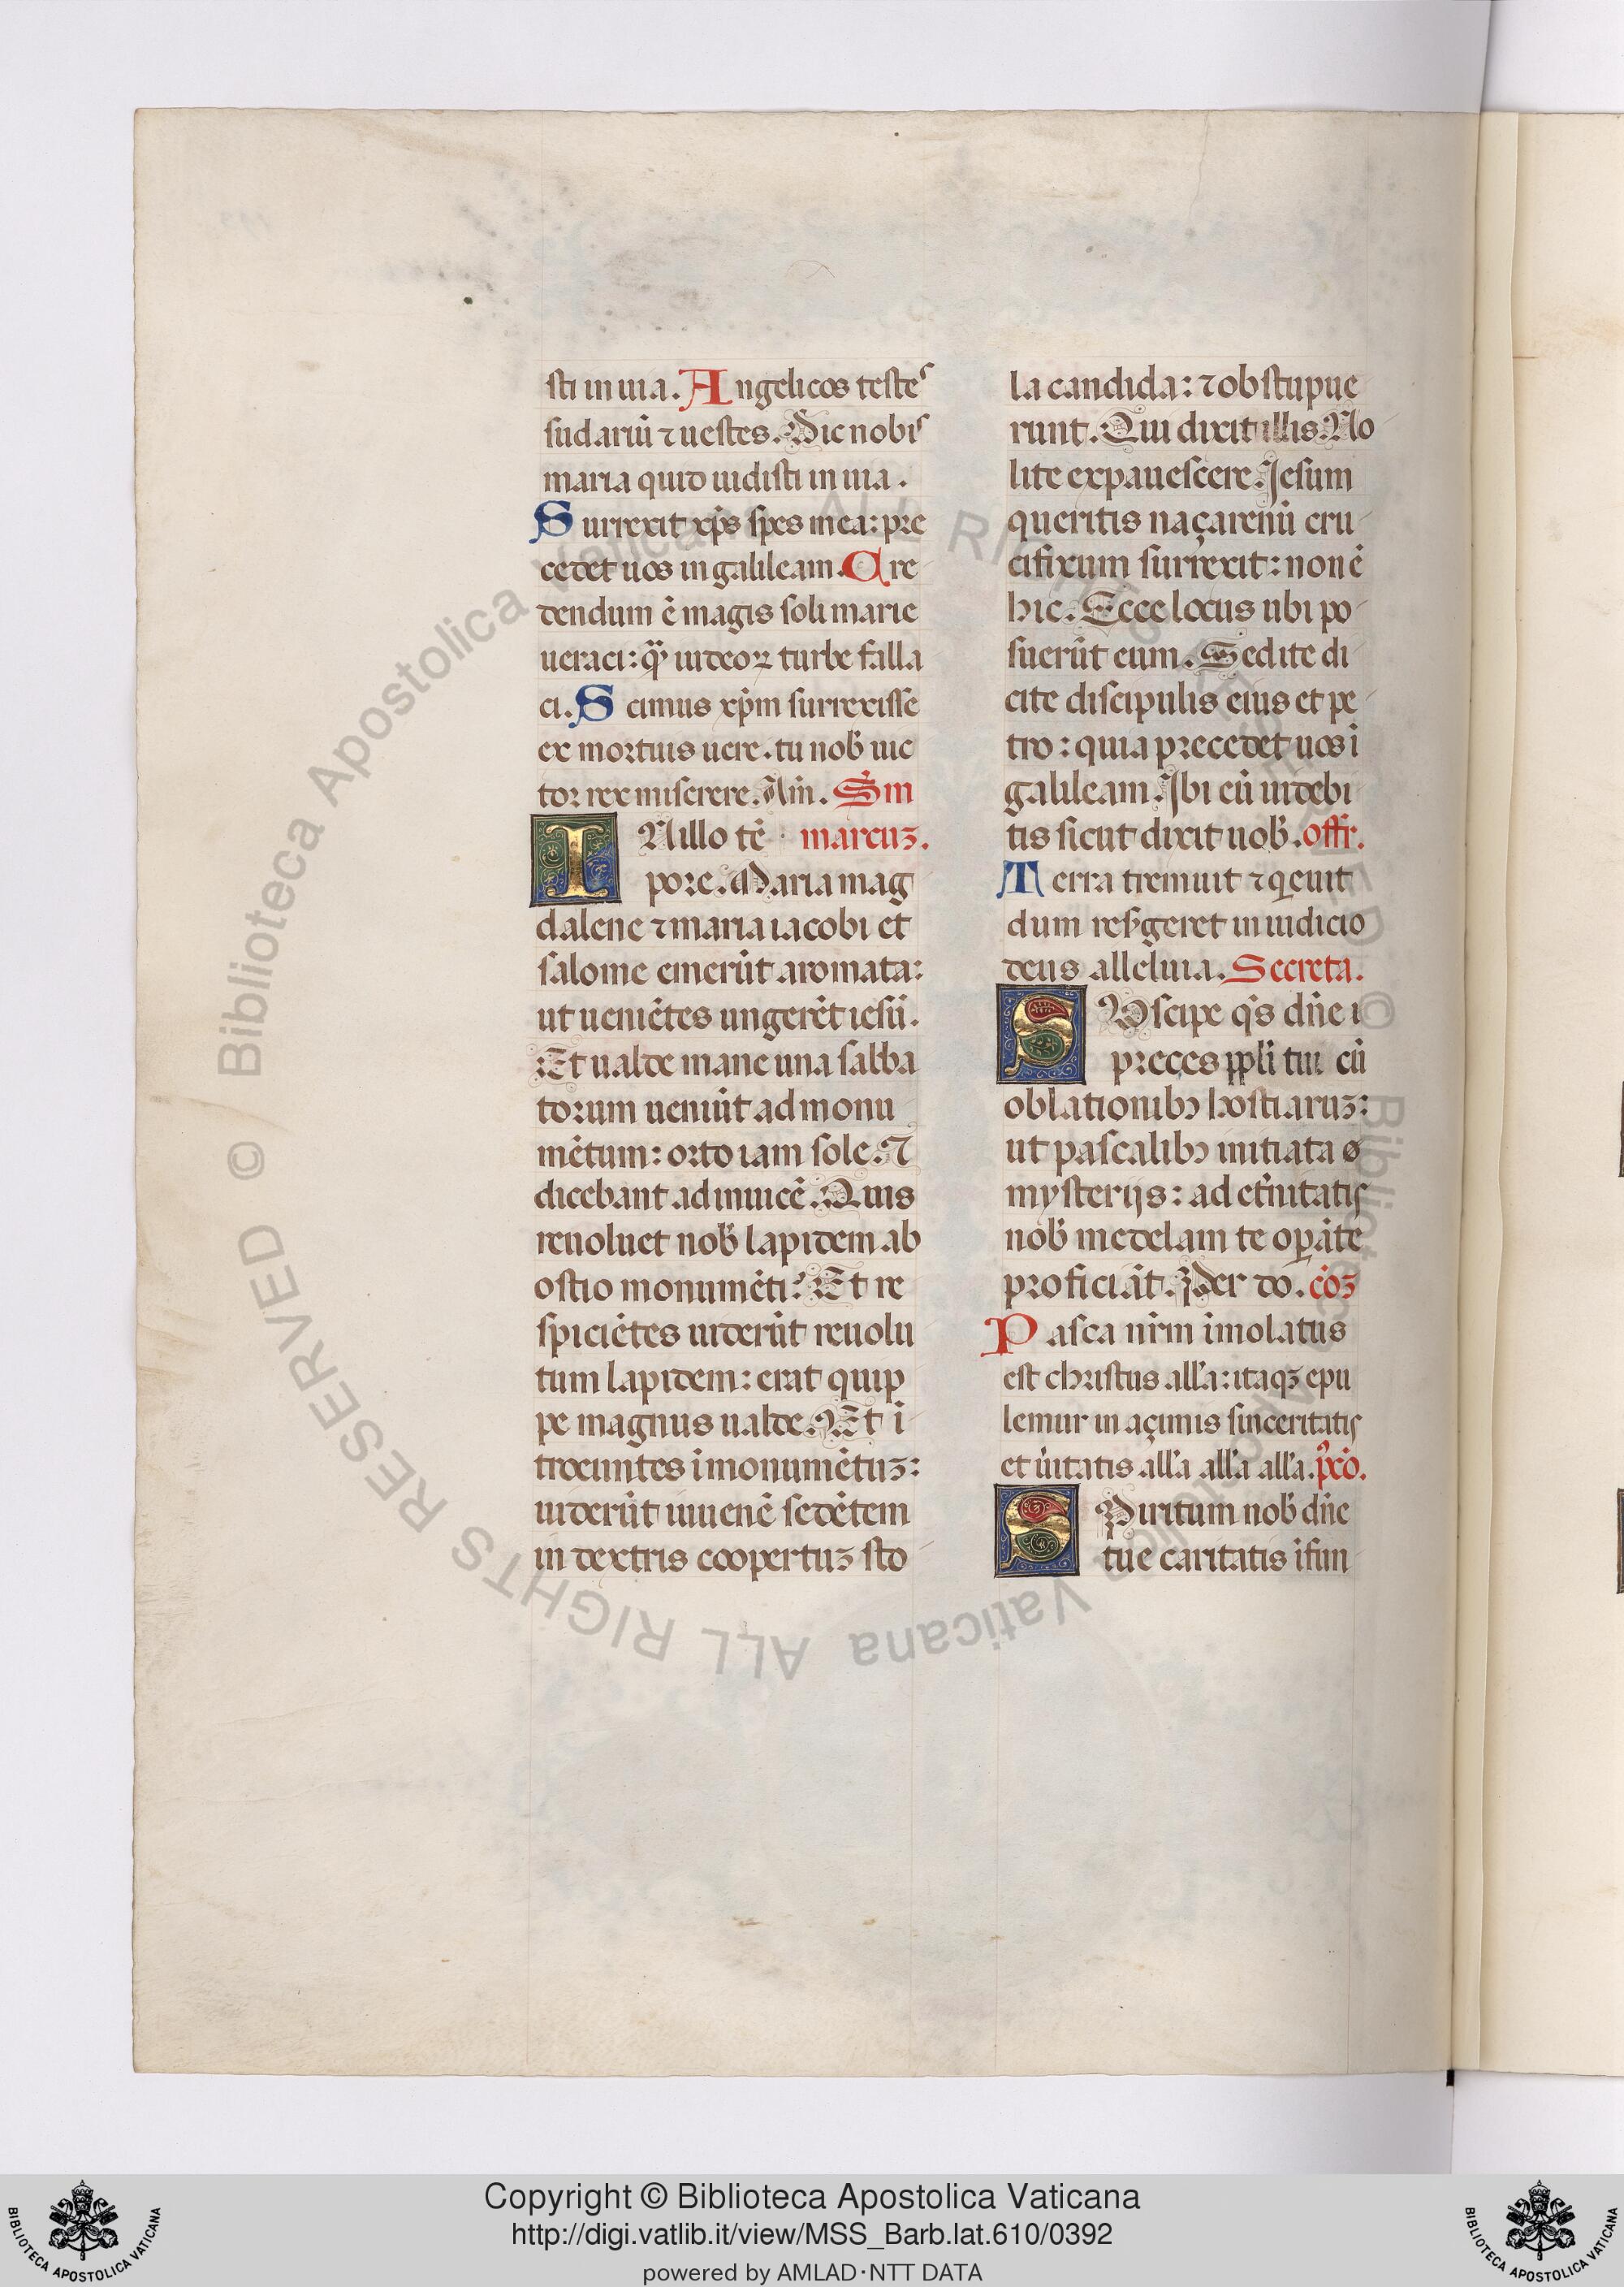 sti in uia. Angelicos testes
sudariū ⁊ uestes. Dic nobis
maria quid uidisti in uia.
Surrexit xp̄s spes mea: pre
cedet uos in galileam. Cre
dendum ē magis soli marie
ueraci: qȝ iudeoꝝ turbe falla
ci. Scimus xp̄m surrexisse
ex mortuis uere. tu nob̄ uic
tor rex miserere. Am̄. Sm̄
IN illo tē marcuȝ.
pore. Maria mag
dalene ⁊ maria iacobi et
salome emerūt aromata:
ut ueniētes ungerēt iesū.
Et ualde mane una sabba
torum ueniūt ad monu
mētum: orto iam sole. ⁊
dicebant ad inuicē. Quis
reuoluet nob̄ lapidem ab
ostio monumēti? Et re
spiciētes uiderūt reuolu
tum lapidem: erat quip
pe magnus ualde. Et ī
troeuntes ī monumētuȝ:
uiderūt iuuenē sedētem
in dextris coopertuȝ sto
la candida: ⁊ obstupue
runt. Qui dixit illis. No
lite expauescere. Jesum
queritis naçarenū cru
cifixum surrexit: non ē
hic. Ecce locus ubi po
suerūt eum. Sed ite di
cite discipulis eius et pe
tro: quia precedet uos ī
galileam. Ibi eū uidebi
tis sicut dixit uob̄. offr̄.
Terra tremuit ⁊ qͥeuit
dum resᷣgeret in iudicio
deus alleluia. Secreta.
SUscipe qs̄ dn̄e
preces ppl̄i tui cū
oblationibꝫ hostiaruȝ:
ut pascalibꝫ initiata
mysterijs: ad et̄nitatis
nob̄ medelam te opāte
proficiāt. Per do. cōȝ
Pasca nr̄m īmolatus
est christus all'a: itaqȝ epu
lemur in açimis sinceritatis
et ūitatis all'a all'a all'a. pxcō.
SPiritum nob̄ dn̄e
tue caritatis īfun
Copyright © Biblioteca Apostolica Vaticana
http://digi.vatlib.it/view/MSS_Barb.lat.610/0392
powered by AMLAD·NTT DATA
© Biblioteca Apostolica Vaticana ALL RIGHTS RESERVED
© Biblioteca Apostolica Vaticana ALL RIGHTS RESERVED
BIBLIOTECA APOSTOLICA VATICANA
BIBLIOTECA APOSTOLICA VATICANA